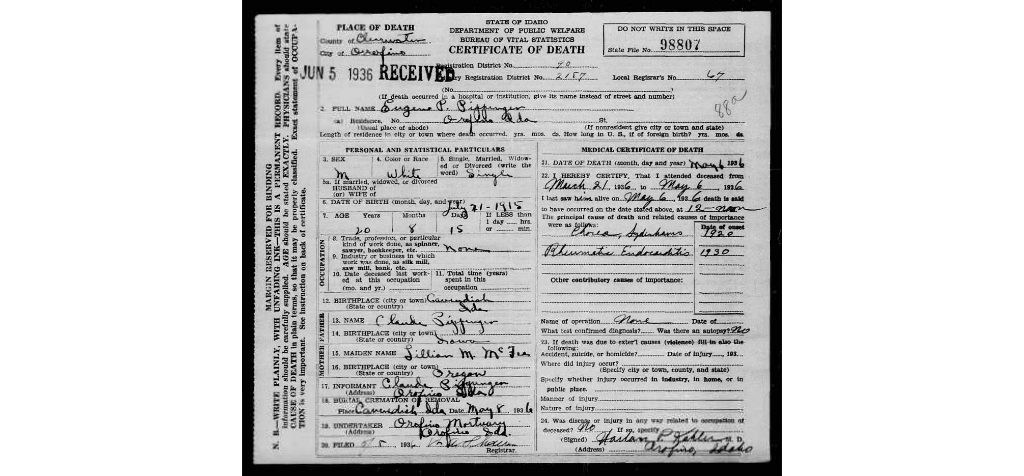 STATE OF IDAHO
DEPARTMENT OF PUBLIC WELFARE
BUREAU OF VITAL STATISTICS
CERTIFICATE OF DEATH
DO NOT WRITE IN THIS SPACE
State File No. 98807
PLACE OF DEATH
County of Clearwater
City of Orofino
JUN 5 1936 RECEIVED
Registration District No. 70
Registration District No. 2157 Local Registrar's No. 67
(No.
(If death occurred in a hospital or institution, give its name instead of street and number)
88a
2. FULL NAME Eugene P. Pippinger
(a) Residence. No. Orofino Ida St.
(Usual place of abode) (If nonresident give city or town and state)
Length of residence in city or town where death occurred. yrs. mos. ds. How long in U. S., if of foreign birth? yrs. mos. ds.
PERSONAL AND STATISTICAL PARTICULARS
3. SEX M
4. Color or Race White
5. Single, Married, Widowed or Divorced (write the word) Single
5a. If married, widowed, or divorced
HUSBAND of
(or) WIFE of
6. DATE OF BIRTH (month, day, and year) July 21-1915
7. AGE Years Months Days If LESS than
1 day hrs.
or min.
20 8 15
OCCUPATION
8. Trade, profession, or particular
kind of work done, as spinner,
sawyer, bookkeeper, etc. None
9. Industry or business in which
work was done, as silk mill,
saw mill, bank, etc.
10. Date deceased last worked at this occupation
(mo. and yr.)
11. Total time (years)
spent in this
occupation
12. BIRTHPLACE (city or town) Cavendish
(State or country) Ida
FATHER
13. NAME Claude Pippinger
14. BIRTHPLACE (city or town)
(State or country) Iowa
MOTHER
15. MAIDEN NAME Lillian M. McFee
16. BIRTHPLACE (city or town)
(State or country) Oregon
17. INFORMANT Claude Pippinger
(Address) Orofino Ida
18. BURIAL CREMATION OR REMOVAL
Place Cavendish Ida Date May 8 1936
19. UNDERTAKER Orofino Mortuary
(Address) Orofino Ida
20. FILED 5/8 1936
Registrar.
MEDICAL CERTIFICATE OF DEATH
21. DATE OF DEATH (month, day and year) May 6 1936
22. I HEREBY CERTIFY, That I attended deceased from
March 21 1936 to May 6 1936
I last saw him alive on May 6 1936 death is said
to have occurred on the date stated above, at 12-noon
The principal cause of death and related causes of importance
were as follows: Date of onset
Chorea, Sydenhams 1920
Rheumatic Endocarditis 1930
Other contributory causes of importance:
Name of operation None Date of
What test confirmed diagnosis? Was there an autopsy? No
23. If death was due to exter'l causes (violence) fill in also the
following:
Accident, suicide, or homicide? Date of injury 193
Where did injury occur?
(Specify city or town, county, and state)
Specify whether injury occurred in industry, in home, or in
public place.
Manner of injury
Nature of injury
24. Was disease or injury in any way related to occupation of
deceased? No If so, specify
(Signed) Harlan M. D.
(Address) Orofino, Idaho
MARGIN RESERVED FOR BINDING
N. B.—WRITE PLAINLY, WITH UNFADING INK—THIS IS A PERMANENT RECORD. Every item of
information should be carefully supplied. AGE should be stated EXACTLY. PHYSICIANS should state
CAUSE OF DEATH in plain terms, so that it may be properly classified. Exact statement of OCCUPATION is very important. See instruction on back of certificate.